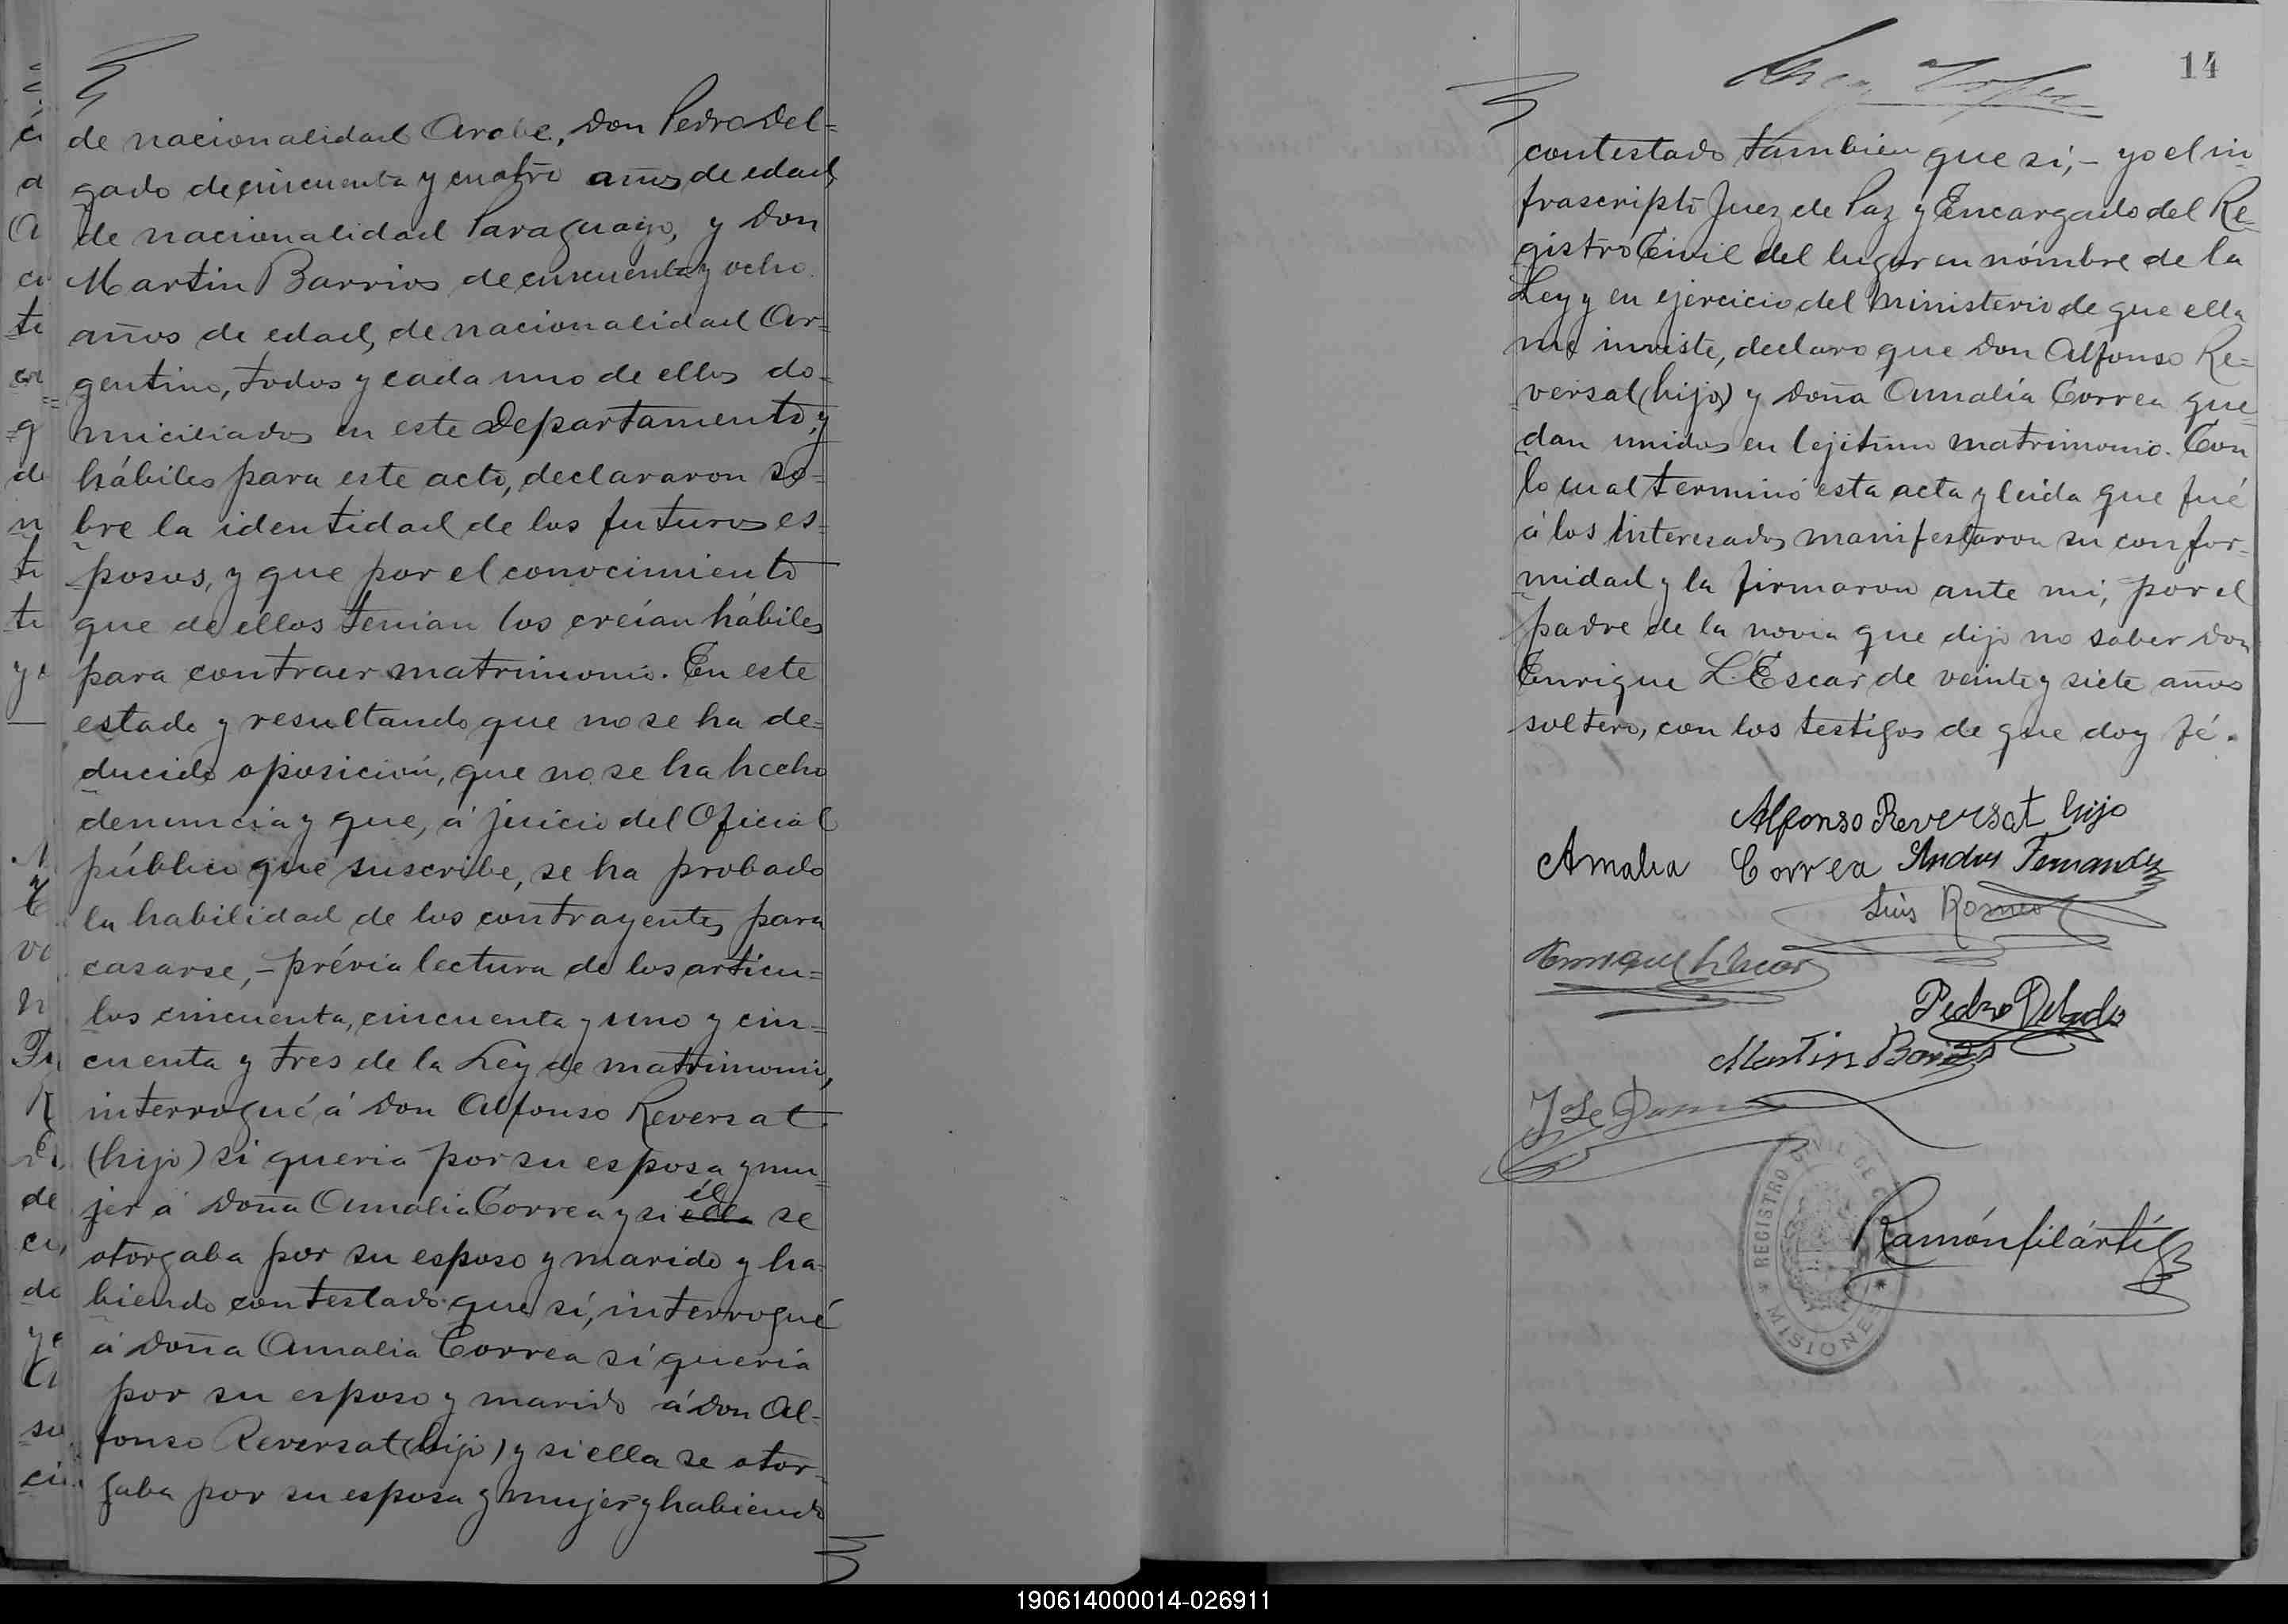 de nacionalidad Arabe, Don Pedro Del=
gado de cincuenta y cuatro años de edad
de nacionalidad Paraguayo, y Don
Martin Barrios de cincuenta y ocho
años de edad, de nacionalidad Ar=
gentino, todos y cada uno de ellos do=
miciliados en este Departamento, y
hábiles para este acto, declararon so=
bre la identidad de los futuros es=
posos, y que por el conocimiento
que de ellos tenian los creían hábiles
para contraer matrimonio. En este
estado y resultando que no se ha de=
ducido oposición, que no se ha hecho
denuncia y que, á juicio del Oficial
público que suscribe, se ha probado
la habilidad de los contrayentes para
casarse, - prévia lectura de los artícu=
los cincuenta, cincuenta y uno y cin=
cuenta y tres de la Ley de matrimonio,
interrogué á Don Alfonso Reversat
(hijo) si queria por su esposa y mu=
jer á Doña Amalia Correa y si ella él se
otorgaba por su esposo y marido y ha=
biendo contestado que sí, interrogué
á Doña Amalia Correa si quería
por su esposo y marido á Don Al=
fonso Reversat (hijo) y si ella se otor=
gaba por su esposa y mujer y habiendo
14
contestado tambien que sí, - yo el in
frascripto Juez de Paz y Encargado del Re=
gistro Civil del lugar en nómbre de la
Ley y en ejercicio del Ministerio de que ella
me inviste, declaro que Don Alfonso Re=
versat (hijo) y Doña Amalia Correa que=
dan unidos en lejitimo matrimonio. Con
lo cual terminó esta acta y leida que fué
á los interesados manifestaron su confor=
midad y la firmaron ante mi, por el
padre de la novia que dijo no saber Don
Enrique L'Escar de veinte y siete años
soltero, con los testigos de que doy fé.
Alfonso Reversat hijo
Amalia Correa Andres Fernandez
Luis Romeo
Enrique L'Escar
Pedro Delgado
Martin Barrios
REGISTRO CIVIL DE
MISIONES
Ramón filártiga
190614000014-026911